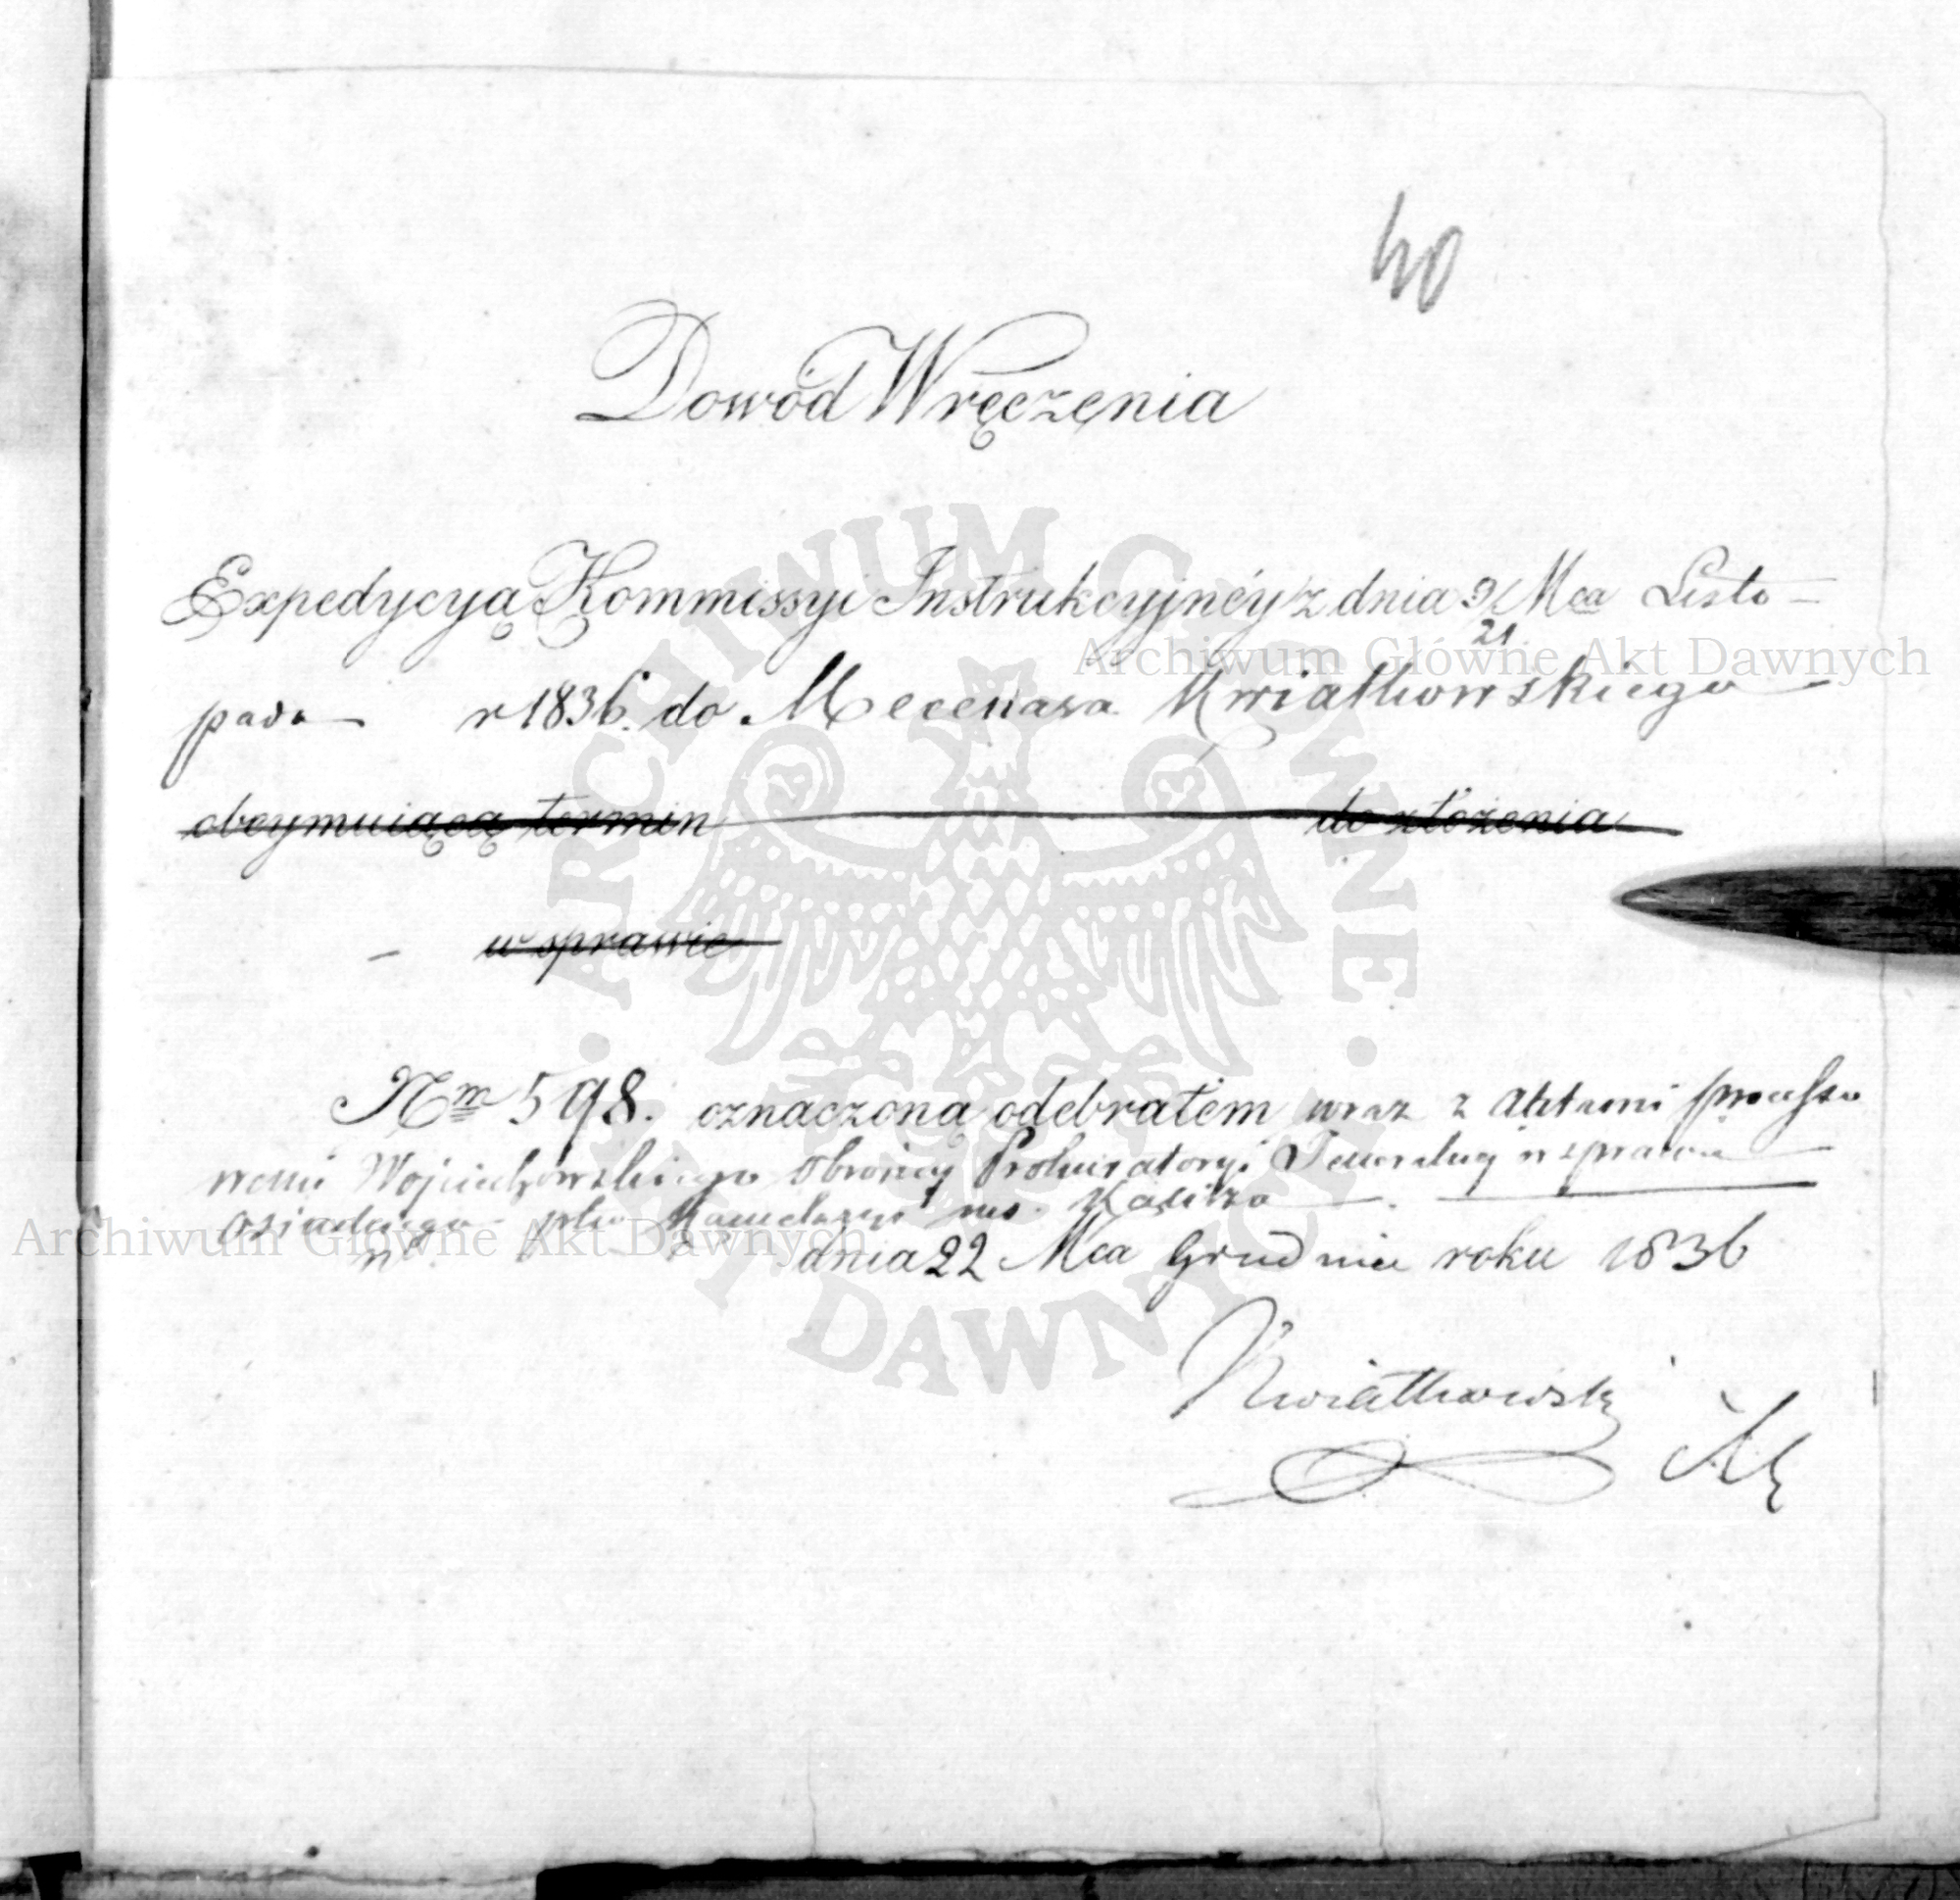 40
Dowód Wręczenia
Expedycyą Kommissyi Instrukcyjnéy z dnia 9/21 Mca Listo-
pada r 1836. do Mecenasa Kwiatkowskiego
obeymuiącą termin do złożenia
w sprawie
Nrm 598. oznaczoną odebrałem wraz z aktami processo
wemi Wojciechowskiego Obrońcy Prokuratoryi Generalnej w sprawie
dnia 22 Mca Grudnia roku 1836
Kwiatkowski
Archiwum Główne Akt Dawnych
Archiwum Główne Akt Dawnych
ARCHIWUM GŁÓWNE AKT DAWNYCH